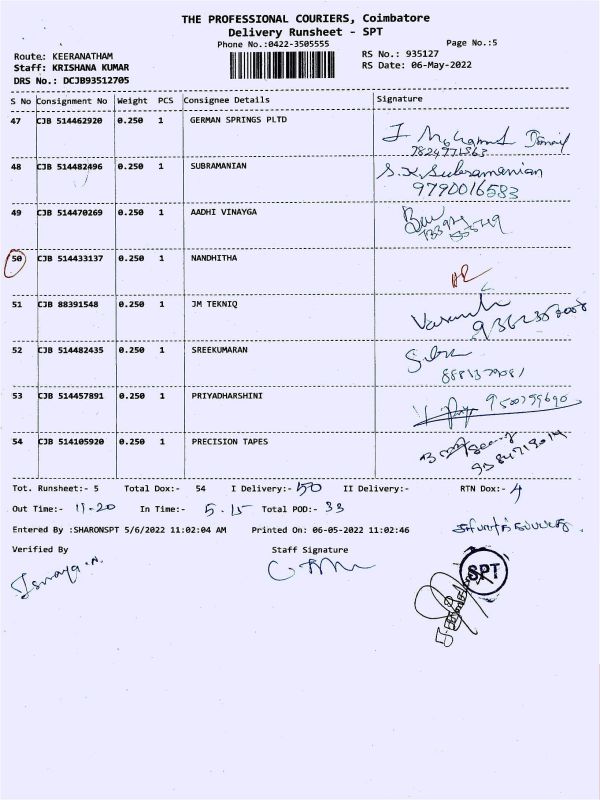 THE PROFESSIONAL COURIERS, Coimbatore
Delivery Runsheet - SPT
Phone No.:0422-3505555
Page No.:5
Route: KEERANATHAM
RS No.: 935127
Staff: KRISHANA KUMAR
RS Date: 06-May-2022
DRS No.: DCJB93512705
S No Consignment No Weight PCS Consignee Details Signature
47 CJB 514462920 0.250 1 GERMAN SPRINGS PLTD
7824971863
48 CJB 514482496 0.250 1 SUBRAMANIAN S.K.Subramanian
9790016583
49 CJB 514470269 0.250 1 AADHI VINAYGA
50 CJB 514433137 0.250 1 NANDHITHA
51 CJB 88391548 0.250 1 JM TEKNIQ
52 CJB 514482435 0.250 1 SREEKUMARAN
53 CJB 514457891 0.250 1 PRIYADHARSHINI
54 CJB 514105920 0.250 1 PRECISION TAPES
Tot. Runsheet:- 5 Total Dox:- 54 I Delivery:- 50 II Delivery:- RTN Dox:- 4
Out Time:- 11-20 In Time:- 5.15 Total POD:- 33
Entered By :SHARONSPT 5/6/2022 11:02:04 AM Printed On: 06-05-2022 11:02:46
Verified By Staff Signature
SPT